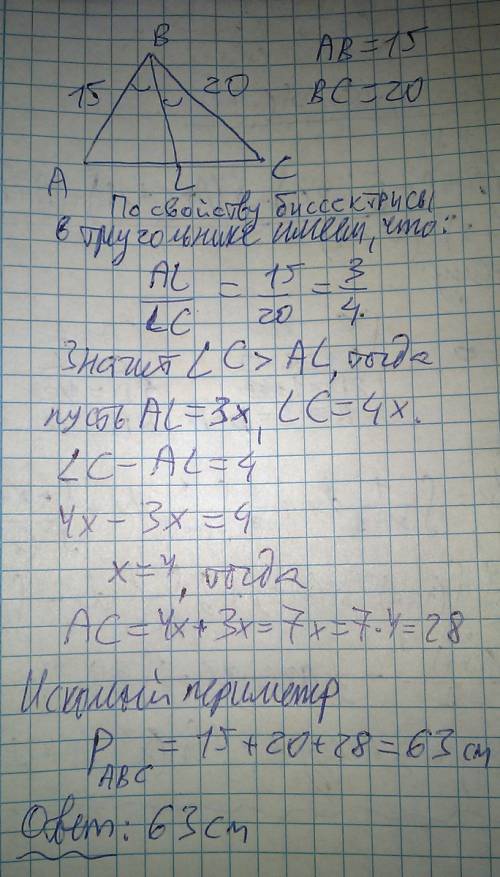 B
AB = 15
15 20
BC = 20
A L C
По свойству биссектрисы
в треугольнике имеем, что:
AL/LC = 15/20 = 3/4.
Значит LC > AL, тогда
пусть AL = 3x, LC = 4x.
LC - AL = 4
4x - 3x = 4
x = 4, тогда
AC = 4x + 3x = 7x = 7·4 = 28
Искомый периметр
P ABC = 15 + 20 + 28 = 63 см
Ответ: 63 см